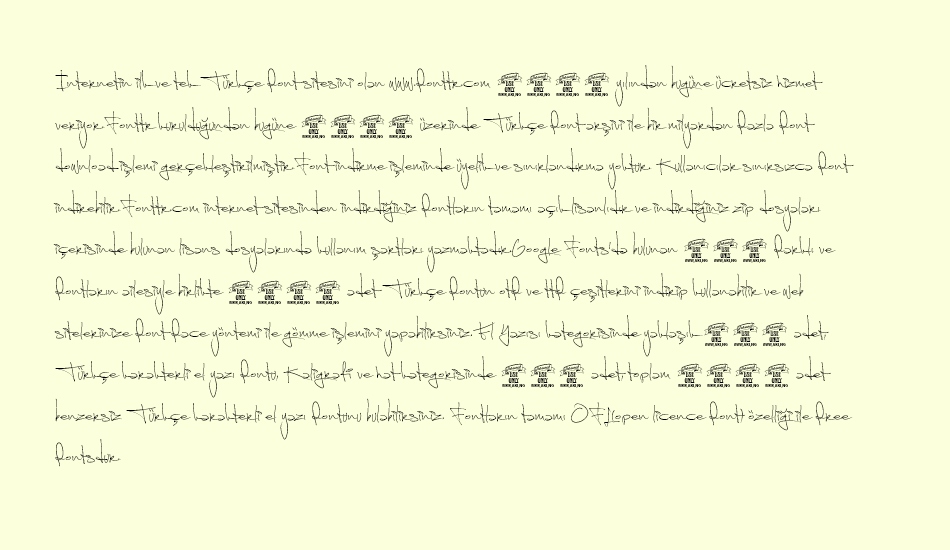 İnternetin ilk ve tek Türkçe font sitesini olan www.fonttr.com yılından bugüne ücretsiz hizmet
veriyor. Fonttr kurulduğundan bugüne üzerinde Türkçe font arşivi ile bir milyardan fazla font
download işlemi gerçekleştirilmiştir. Font indirme işleminde üyelik ve sınırlandırma yoktur. Kullanıcılar sınırsızca font
indirebilir. Fonttr.com internet sitesinden indirdiğiniz fontların tamamı açık lisanlıdır ve indirdiğiniz zip dosyaları
içerisinde bulunan lisans dosyalarında kullanım şartları yazmaktadır.Google Fonts'da bulunan farklı ve
fontların ailesiyle birlikte adet Türkçe fontun otf ve ttf çeşitlerini indirip kullanabilir ve web
sitelerinize fontface yöntemi ile gömme işlemini yapabilirsiniz. El Yazısı kategorisinde yaklaşık adet,
Türkçe karakterli el yazı fontu, Kaligrafi ve hat kategorisinde adet, toplam adet
benzersiz Türkçe karakterli el yazı fontunu bulabilirsiniz. Fontların tamamı OFL(open licence font) özelliği ile free
fontsdur.